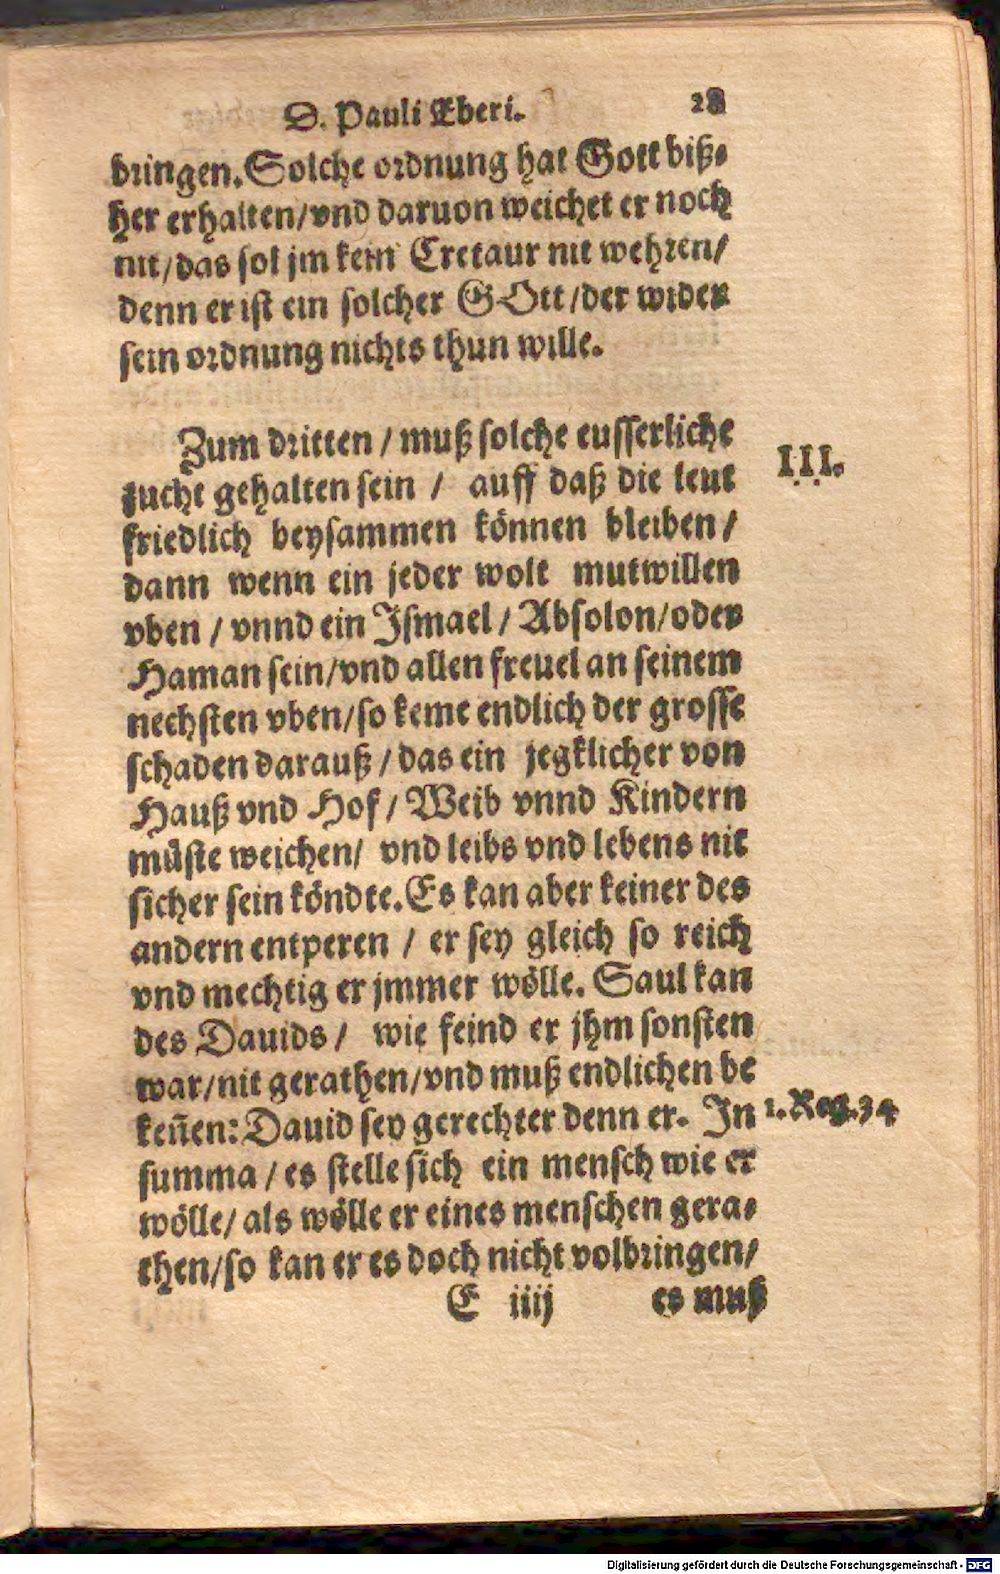 D. Pauli Eberi. 28
bringen. Solche ordnung hat Gott biß⸗
her erhalten/vnd daruon weichet er noch
nit/das sol jm kein Cretaur nit wehren/
denn er ist ein solcher GOtt/der wider
sein ordnung nichts thun wille.
Zum dritten / muß solche eusserliche
zucht gehalten sein / auff daß die leut
III.
friedlich beysammen können bleiben/
dann wenn ein jeder wolt mutwillen
vben / vnnd ein Ismael / Absolon/oder
Haman sein/vnd allen freuel an seinem
nechsten vben/so keme endlich der grosse
schaden darauß / das ein jegklicher von
Hauß vnd Hof / Weib vnnd Kindern
müste weichen/ vnd leibs vnd lebens nit
sicher sein köndte. Es kan aber keiner des
andern entperen / er sey gleich so reich
vnd mechtig er jmmer wölle. Saul kan
des Dauids / wie feind er jhm sonsten
war/nit gerathen/vnd muß endlichen be
keñen: Dauid sey gerechter denn er. In
1. Reg. 24
summa / es stelle sich ein mensch wie er
wölle/ als wölle er eines menschen gera⸗
then/so kan er es doch nicht volbringen/
E iiij es muß
Digitalisierung gefördert durch die Deutsche Forschungsgemeinschaft - DFG